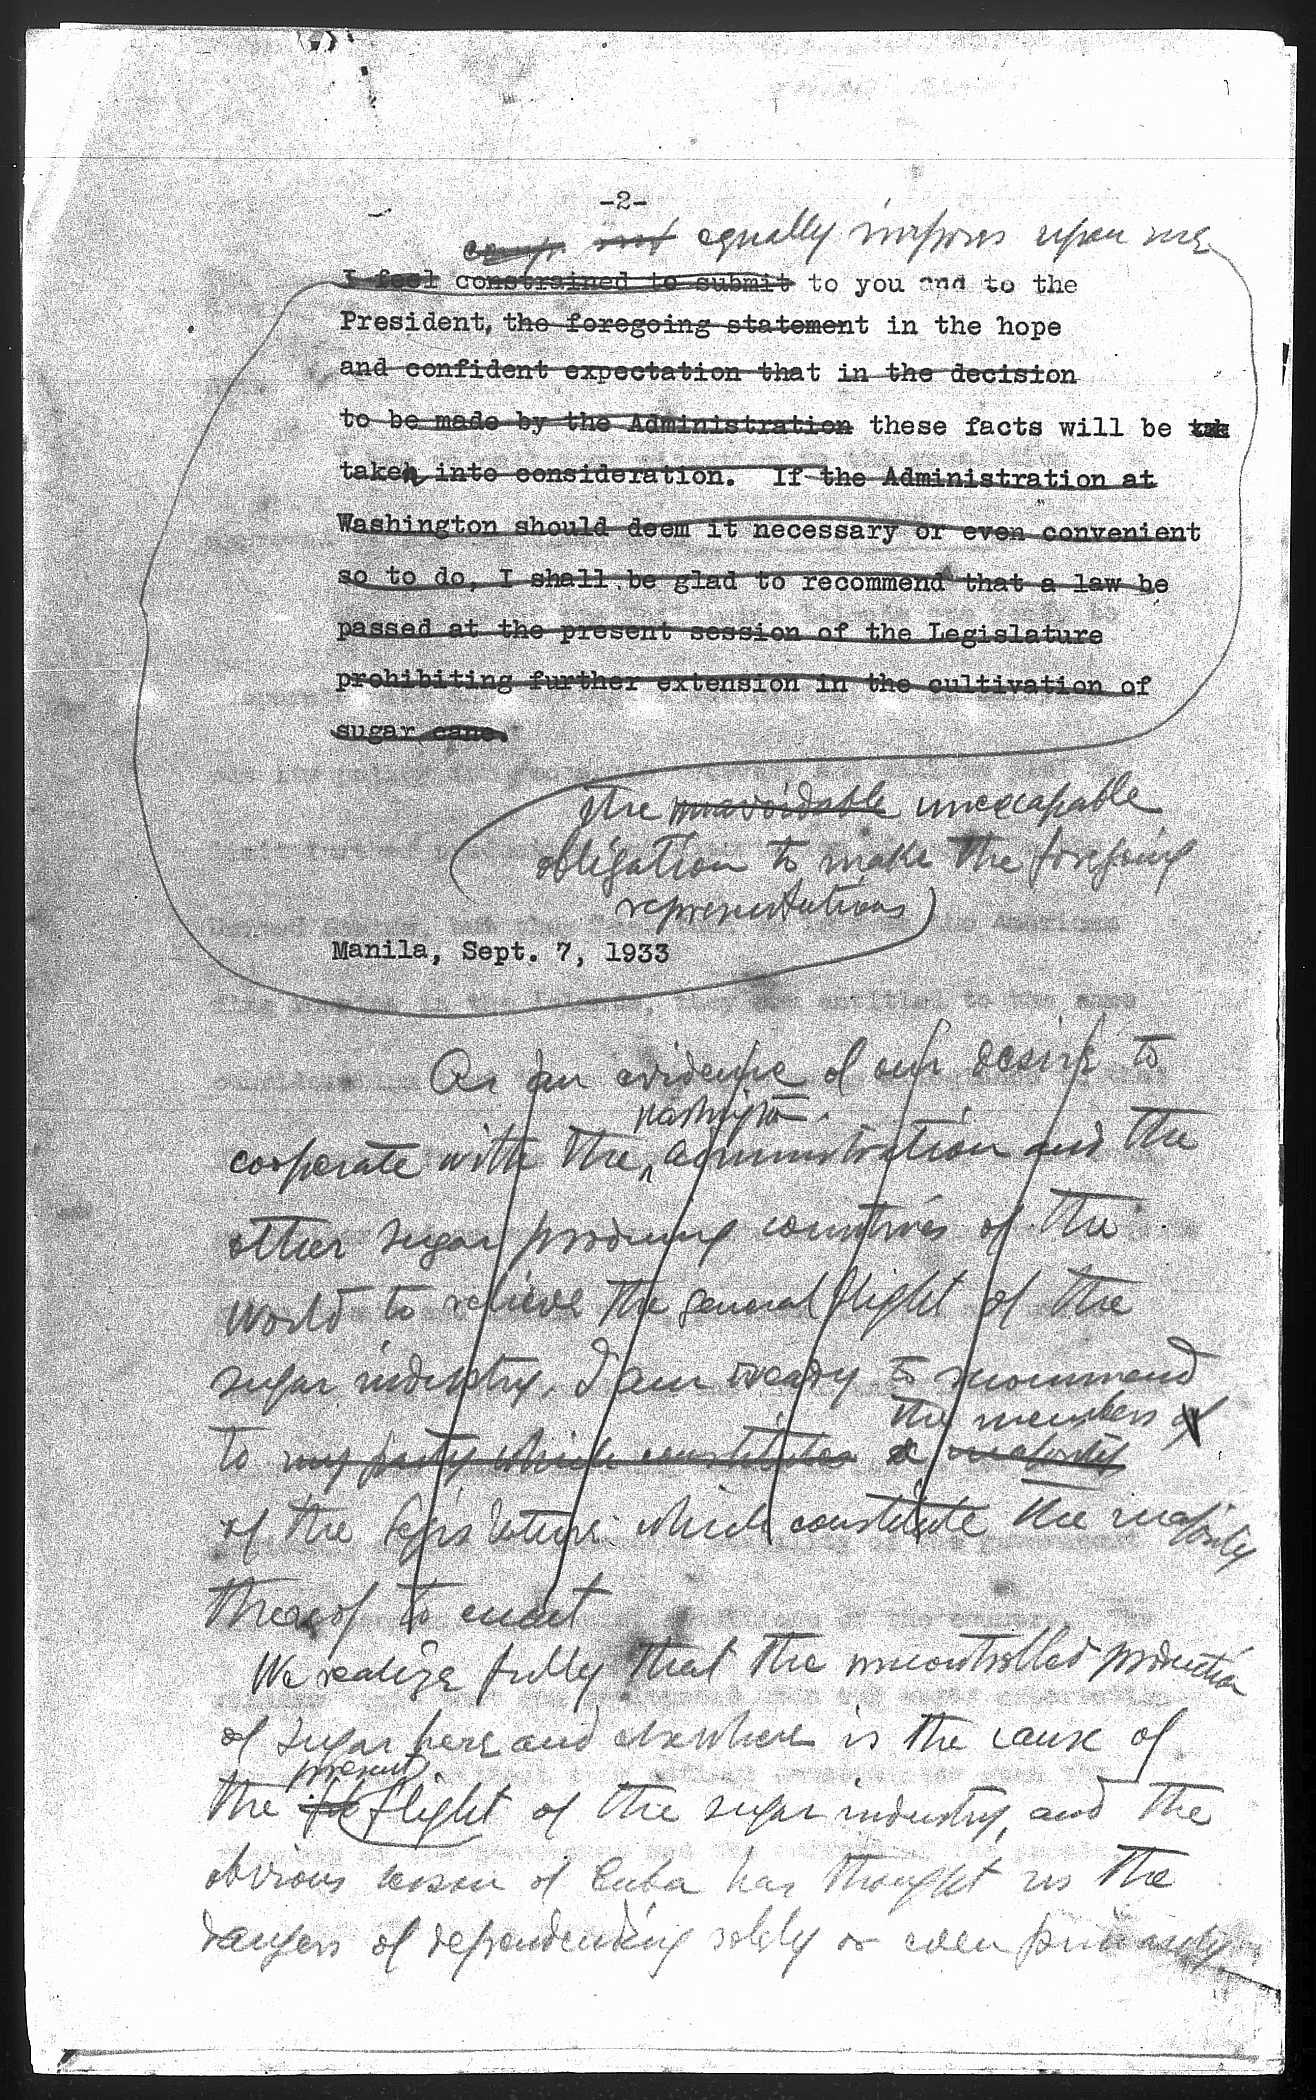 -2-
equally impress upon me
I feel constrained to submit to you and to the
President, the foregoing statement in the hope
and confident expectation that in the decision
to be made by the Administration these facts will be tak
taken into consideration. If the Administration at
Washington should deem it necessary or even convenient
so to do, I shall be glad to recommend that a law be
passed at the present session of the Legislature
prohibiting further extension in the cultivation of
sugar cane.
the unavoidable unescapable
obligation to make the foregoing
representations)
Manila, Sept. 7, 1933
As an evidence of our desire to
Washington
cooperate with the administration and the
other sugar producing countries of the
world to relieve the general plight of the
sugar industry, I am ready to recommend
the members of
to my party which constitutes a majority
of the legislature which constitute the majority
thereof to enact
We realize fully that the uncontrolled production
of sugar here and elsewhere is the cause of
present
the plight of the sugar industry, and the
obvious lesson of Cuba has thought us the
dangers of dependending solely or even primarily